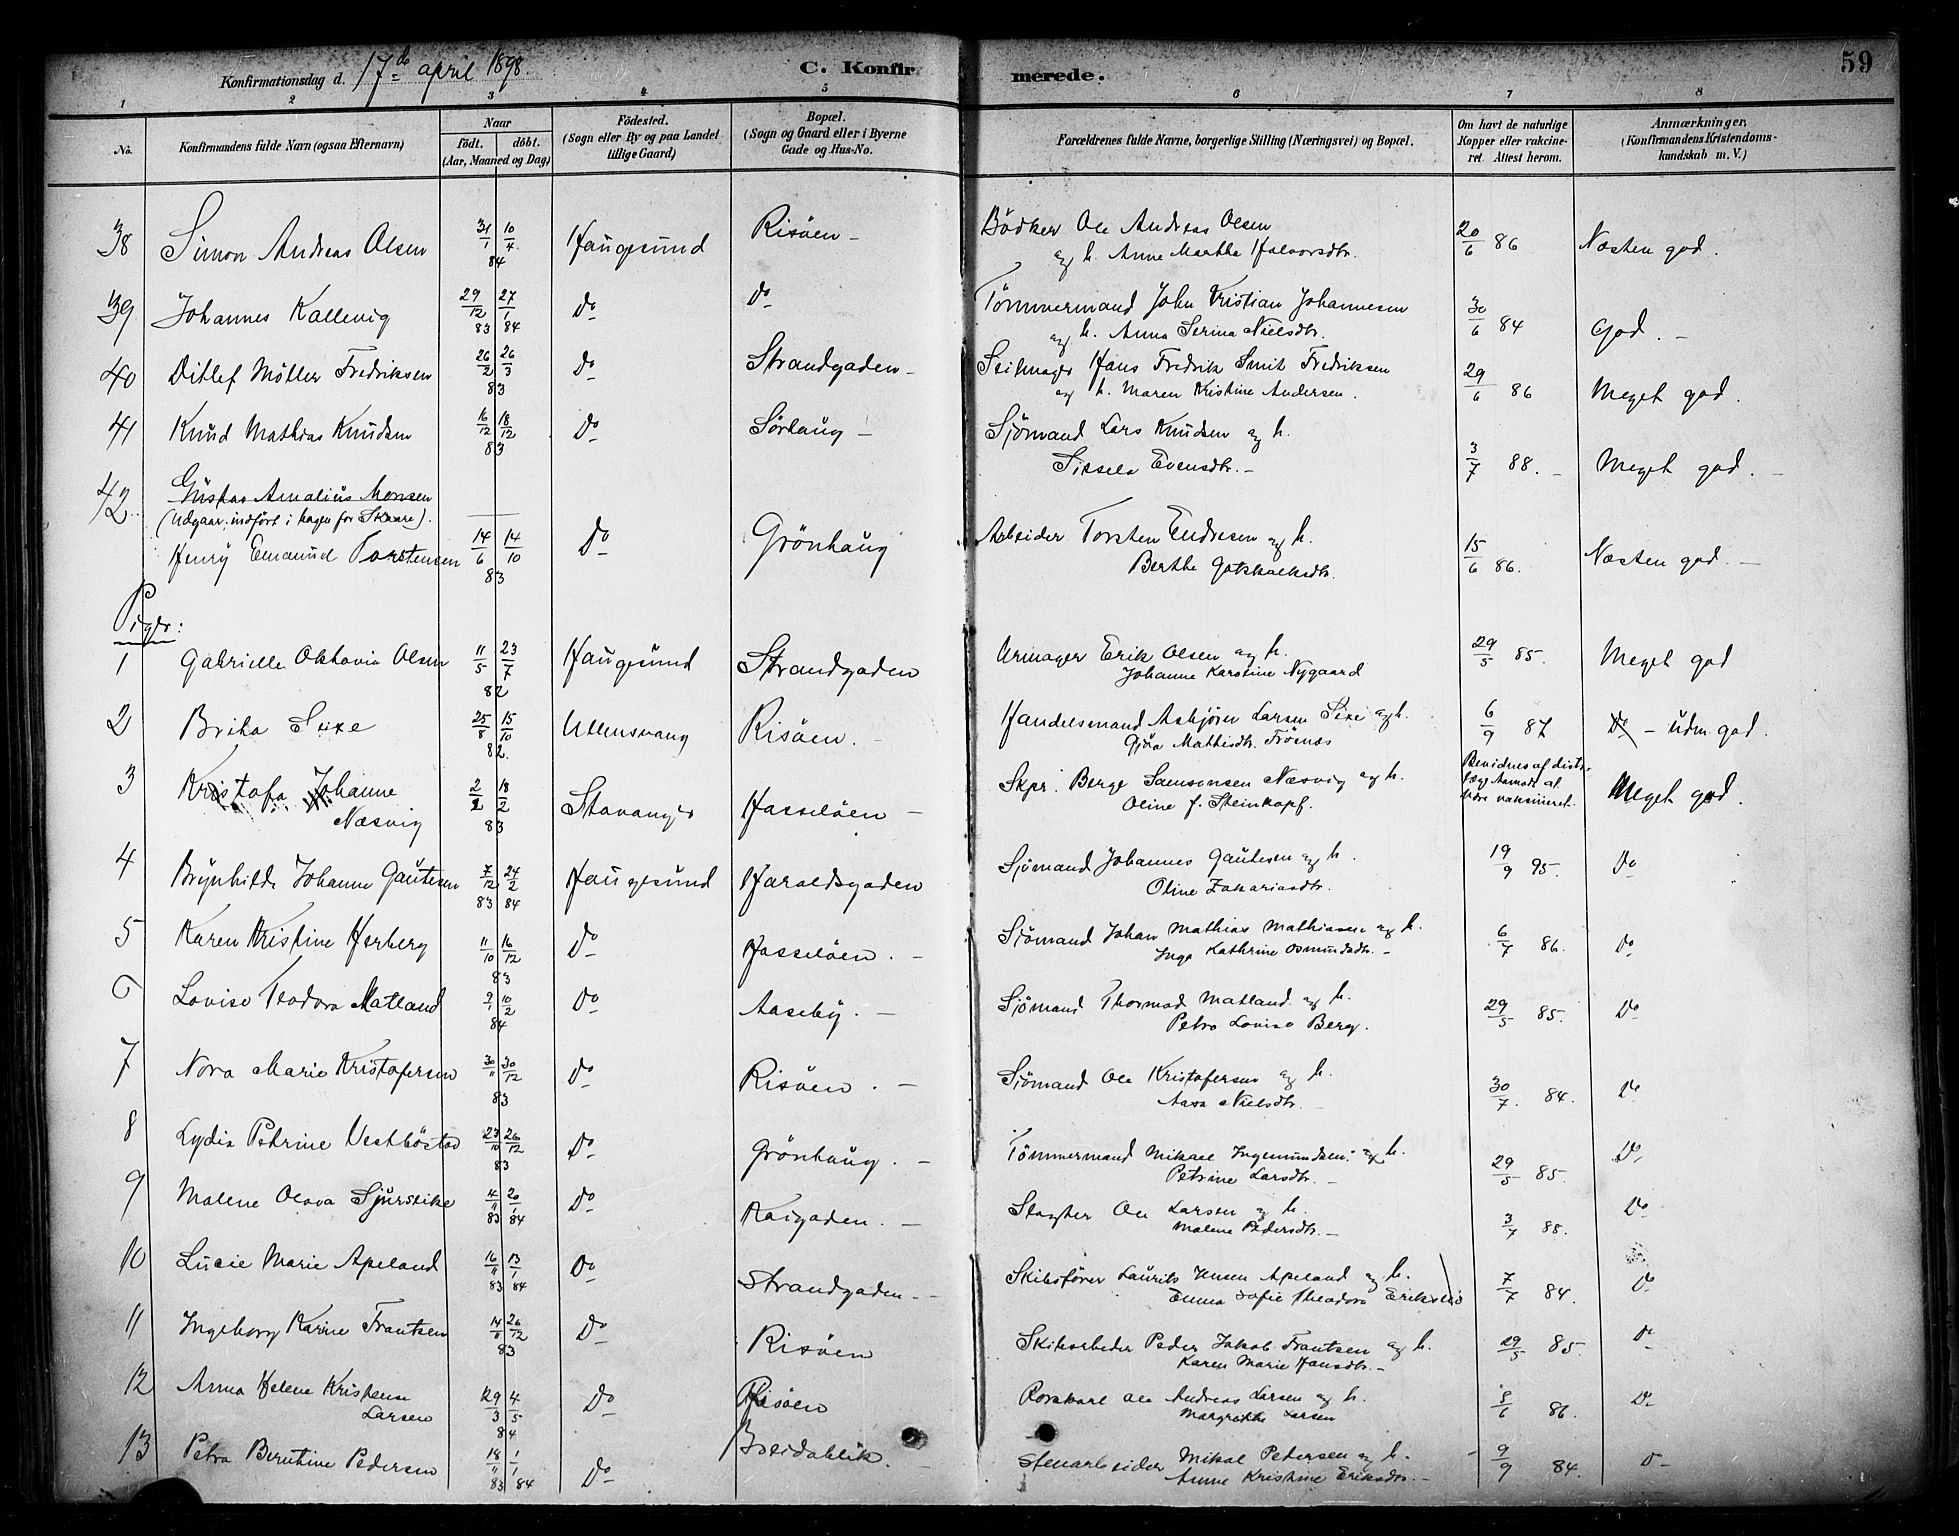 Konfirmationsdag d. 17de april 1898. C. Konfirmerede. 59
1 2 3 4 5 6 7 8
No. Konfirmandens fulde Navn (ogsaa Efternavn) Naar født. døbt. (Aar, Maaned og Dag) Födested. (Sogn eller By og paa Landet tillige Gaard) Bopæl. (Sogn og Gaard eller i Byerne Gade og Hus-No. Forældrenes fulde Navne, borgerlige Stilling (Næringsvei) og Bopæl. Om havt de naturlige Kopper eller vakcineret. Attest herom. Anmærkninger. (Konfirmandens Kristendomskundskab m. V.)
38 Simon Andreas Olsen 31/1 10/4 84 Haugesund Risöen – Bödker Ole Andreas Olsen 20/6 86 Næsten god.
og h. Anne Martha Halvorsdtr.
39 Johannes Kallevig 29/12 83 27/1 84 Do Do Tömmermand John Kristian Johannesen 30/6 84 God. –
og h. Anna Serina Nielsdtr.
40 Ditlef Möller Fredriksen 26/2 26/3 83 Do Strandgaden – Seilmager Hans Fredrik Smit Fredriksen 29/6 86 Meget god.
og h. Maren Kristine Andersen.
41 Knud Mathias Knudsen 16/12 18/12 83 Do Sörhaug – Sjömand Lars Knudsen og h. 3/7 88. – Meget god. –
Sissela Evensdtr. –
42 Gustav Amalius Monsen
(Udgaar, indfört i bogen for Skaare).
Henry Emanuel Torstensen 14/6 14/10 83 Do Grönhaug Arbeider Torsten Endresen og h. 15/6 86. Næsten god. –
Berthe Gotskalksdtr.
Piger:
1 Gabrielle Oktavia Olsen 11/5 23/7 82 Haugesund Strandgaden Urmager Erik Olsen og h. 29/5 85. Meget god
Johanne Karstine Nygaard
2 Brita Sexe 25/8 15/10 82. Ullensvang Risöen. Handelsmand Asbjörn Larsen Sexe og h. 6/9 87 Do – udm. god.
Gjöa Mathisdtr. Trönæs
3 Kristofa Johanne Næsvig 2/2 18/2 83 Stavanger Hasselöen – Skpr. Berge Samsonsen Næsvig og h. Bevidnes af distr. læge at være vaksineret. Meget god.
Oline f. Steinkopf.
4 Brynhilde Johanne Gautesen 7/12 83 24/2 84 Haugesund Haraldsgaden Sjömand Johannes Gautesen og h. 19/9 95. Do
Oline Zakariasdtr.
5 Karen Kristine Herberg 11/10 16/12 83 Do Hasselöen. – Sjömand Johan Mathias Mathiasen og h. 6/7 86. Do
Inga Kathrine Osmundsdtr. –
6 Lovise Teodora Matland 9/1 10/2 84 Do Aaseby. – Sjömand Thormod Matland og h. 29/5 85. Do
Petra Lovise Berg.
7 Nora Marie Kristofersen 30/11 30/12 83 Do Risöen. – Sjömand Ole Kristofersen og h. 30/7. 84. Do
Aasa Nielsdtr.
8 Lydia Petrine Vestböstad 23/10 26/12 83 Do Grönhaug. – Tömmermand Mikael Ingemundsen og h. 29/5 85. Do
Petrine Larsdtr. –
9 Malene Olava Sjurseike 4/11 83 20/1 84 Do Kaigaden. – Slagter Ole Larsen og h. 3/7 88. Do
Malene Pedersdtr. –
10 Lucie Marie Apeland 16/11 83 13/1 84 Do Strandgaden. – Skibsförer Laurits Jensen Apeland og h. 7/7 84. Do
Emma Sofie Theodora Eriksen
11 Ingeborg Karine Frantsen 14/11 26/12 83 Do Risöen Skibsarbeider Peder Jakob Frantsen og h. 29/5 85. Do
Karen Marie Hansdtr. –
12 Anna Helene Kristense Larsen 29/3 4/5 84 Do Risöen Rorskarl Ole Andreas Larsen og h. 8/6 86. Do
Margrethe Larsen
13 Petra Berntine Pedersen 18/11 83 1/1 84 Do Breidablik. Stenarbeider Mikal Pedersen og h. 9/9 84. Do
Anne Kristine Eriksdtr. –